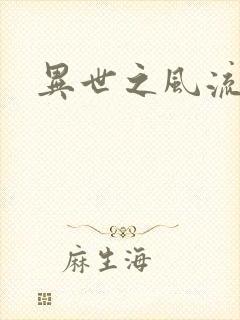 異世之風流
麻生海